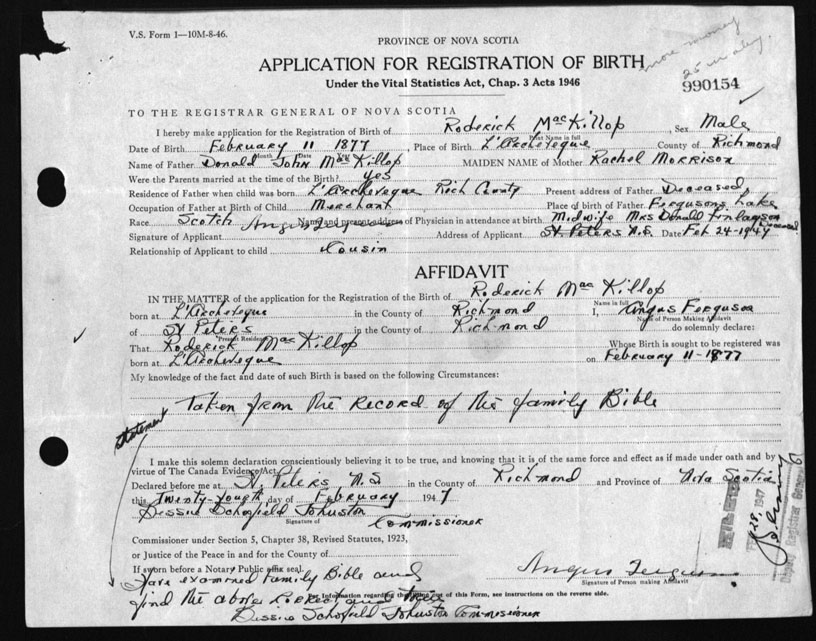 V.S. Form 1—10M-8-46.
PROVINCE OF NOVA SCOTIA
more money
APPLICATION FOR REGISTRATION OF BIRTH
Under the Vital Statistics Act, Chap. 3 Acts 1946
990154
TO THE REGISTRAR GENERAL OF NOVA SCOTIA
I hereby make application for the Registration of Birth of Roderick MacKillop, Sex Male
Print Name in full
Date of Birth February 11 1877, Place of Birth L'Archeveque County of Richmond
Month Date Year
Name of Father Donald John MacKillop MAIDEN NAME of Mother Rachel Morrison
Were the Parents married at the time of the Birth? yes
Residence of Father when child was born L'Archeveque Rich County Present address of Father Deceased
Occupation of Father at Birth of Child Merchant Place of birth of Father Fergusons Lake
Race Scotch Name and present address of Physician in attendance at birth Midwife Mrs Donald Finlayson Deceased
Signature of Applicant Angus Ferguson Address of Applicant St. Peters N.S. Date Feb 24-1947
Relationship of Applicant to child Cousin
AFFIDAVIT
IN THE MATTER of the application for the Registration of the Birth of Roderick MacKillop
Name in full
born at L'Archeveque in the County of Richmond I, Angus Ferguson
Name of Person Making Affidavit
of St Peters in the County of Richmond do solemnly declare:
Present Residence
That Roderick MacKillop Whose Birth is sought to be registered was
born at L'Archeveque on February 11-1877
My knowledge of the fact and date of such Birth is based on the following Circumstances:
Taken from the Record of the family Bible
statement
I make this solemn declaration conscientiously believing it to be true, and knowing that it is of the same force and effect as if made under oath and by
virtue of The Canada Evidence Act.
Declared before me at St. Peters N.S in the County of Richmond and Province of Nova Scotia
this Twenty-fourth day of February 1947
Bessie Schofield Johnston
Signature of Commissioner
Commissioner under Section 5, Chapter 38, Revised Statutes, 1923,
or Justice of the Peace in and for the County of
If sworn before a Notary Public affix seal.
Angus Ferguson
Signature of Person making Affidavit
Have examined family Bible and
find the above correct and
For Information regarding the filling out of this Form, see instructions on the reverse side.
Bessie Schofield Johnston Commissioner
FILED
28, 1947
Deputy Registrar General